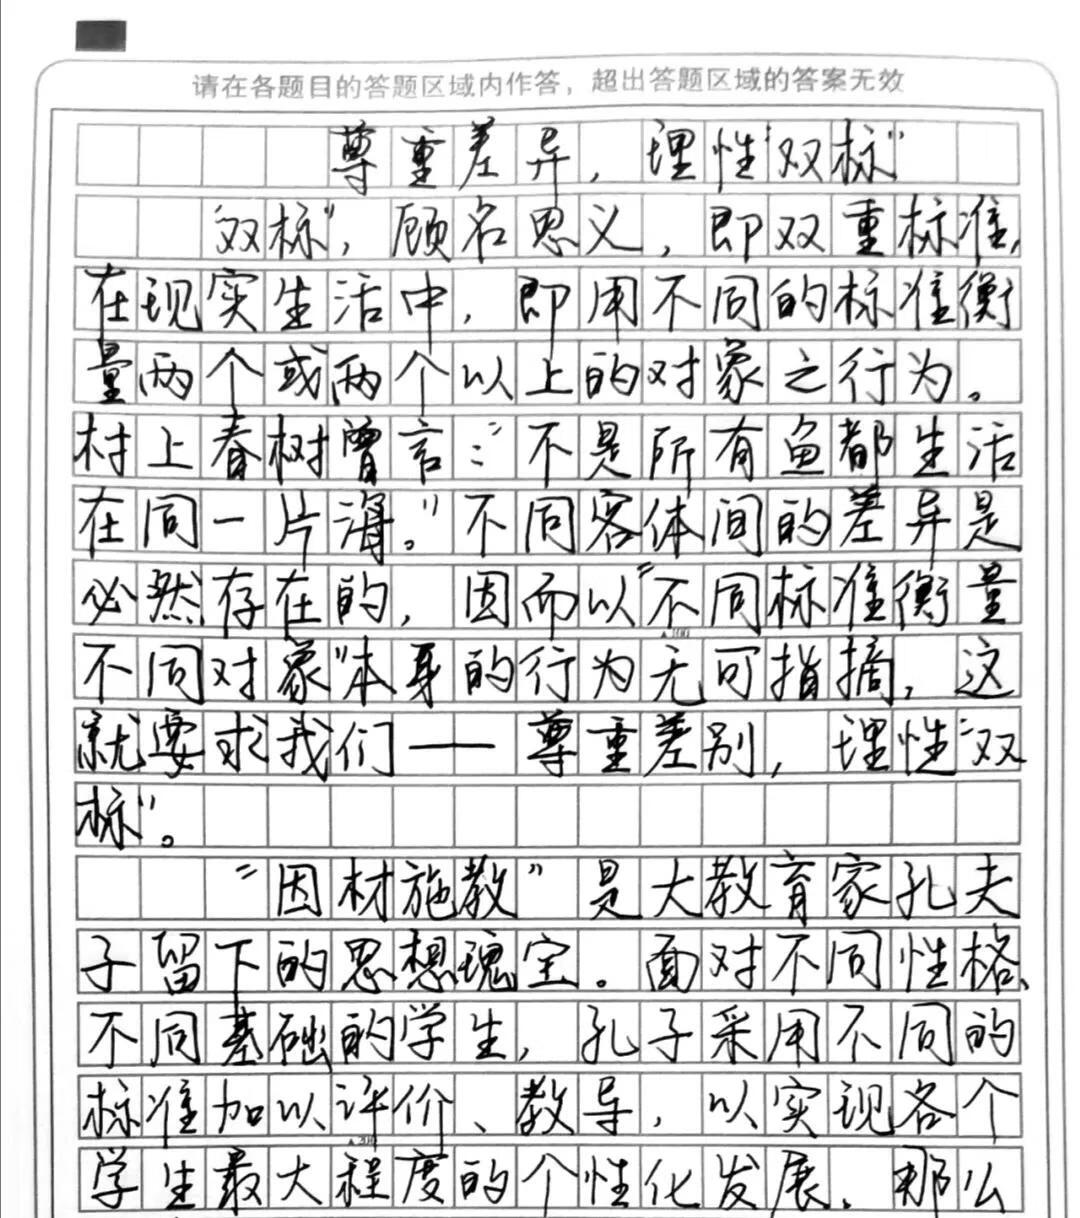 请在各题目的答题区域内作答，超出答题区域的答案无效
尊重差异，理性“双标”
“双标”，顾名思义，即双重标准，
在现实生活中，即用不同的标准衡
量两个或两个以上的对象之行为。
村上春树曾言：“不是所有鱼都生活
在同一片海。”不同客体间的差异是
必然存在的，因而以“不同标准衡量
▲100
不同对象”本身的行为无可指摘，这
就要求我们——尊重差别，理性“双
标”。
“因材施教”是大教育家孔夫
子留下的思想瑰宝。面对不同性格、
不同基础的学生，孔子采用不同的
标准加以评价、教导，以实现各个
▲200
学生最大程度的个性化发展。那么